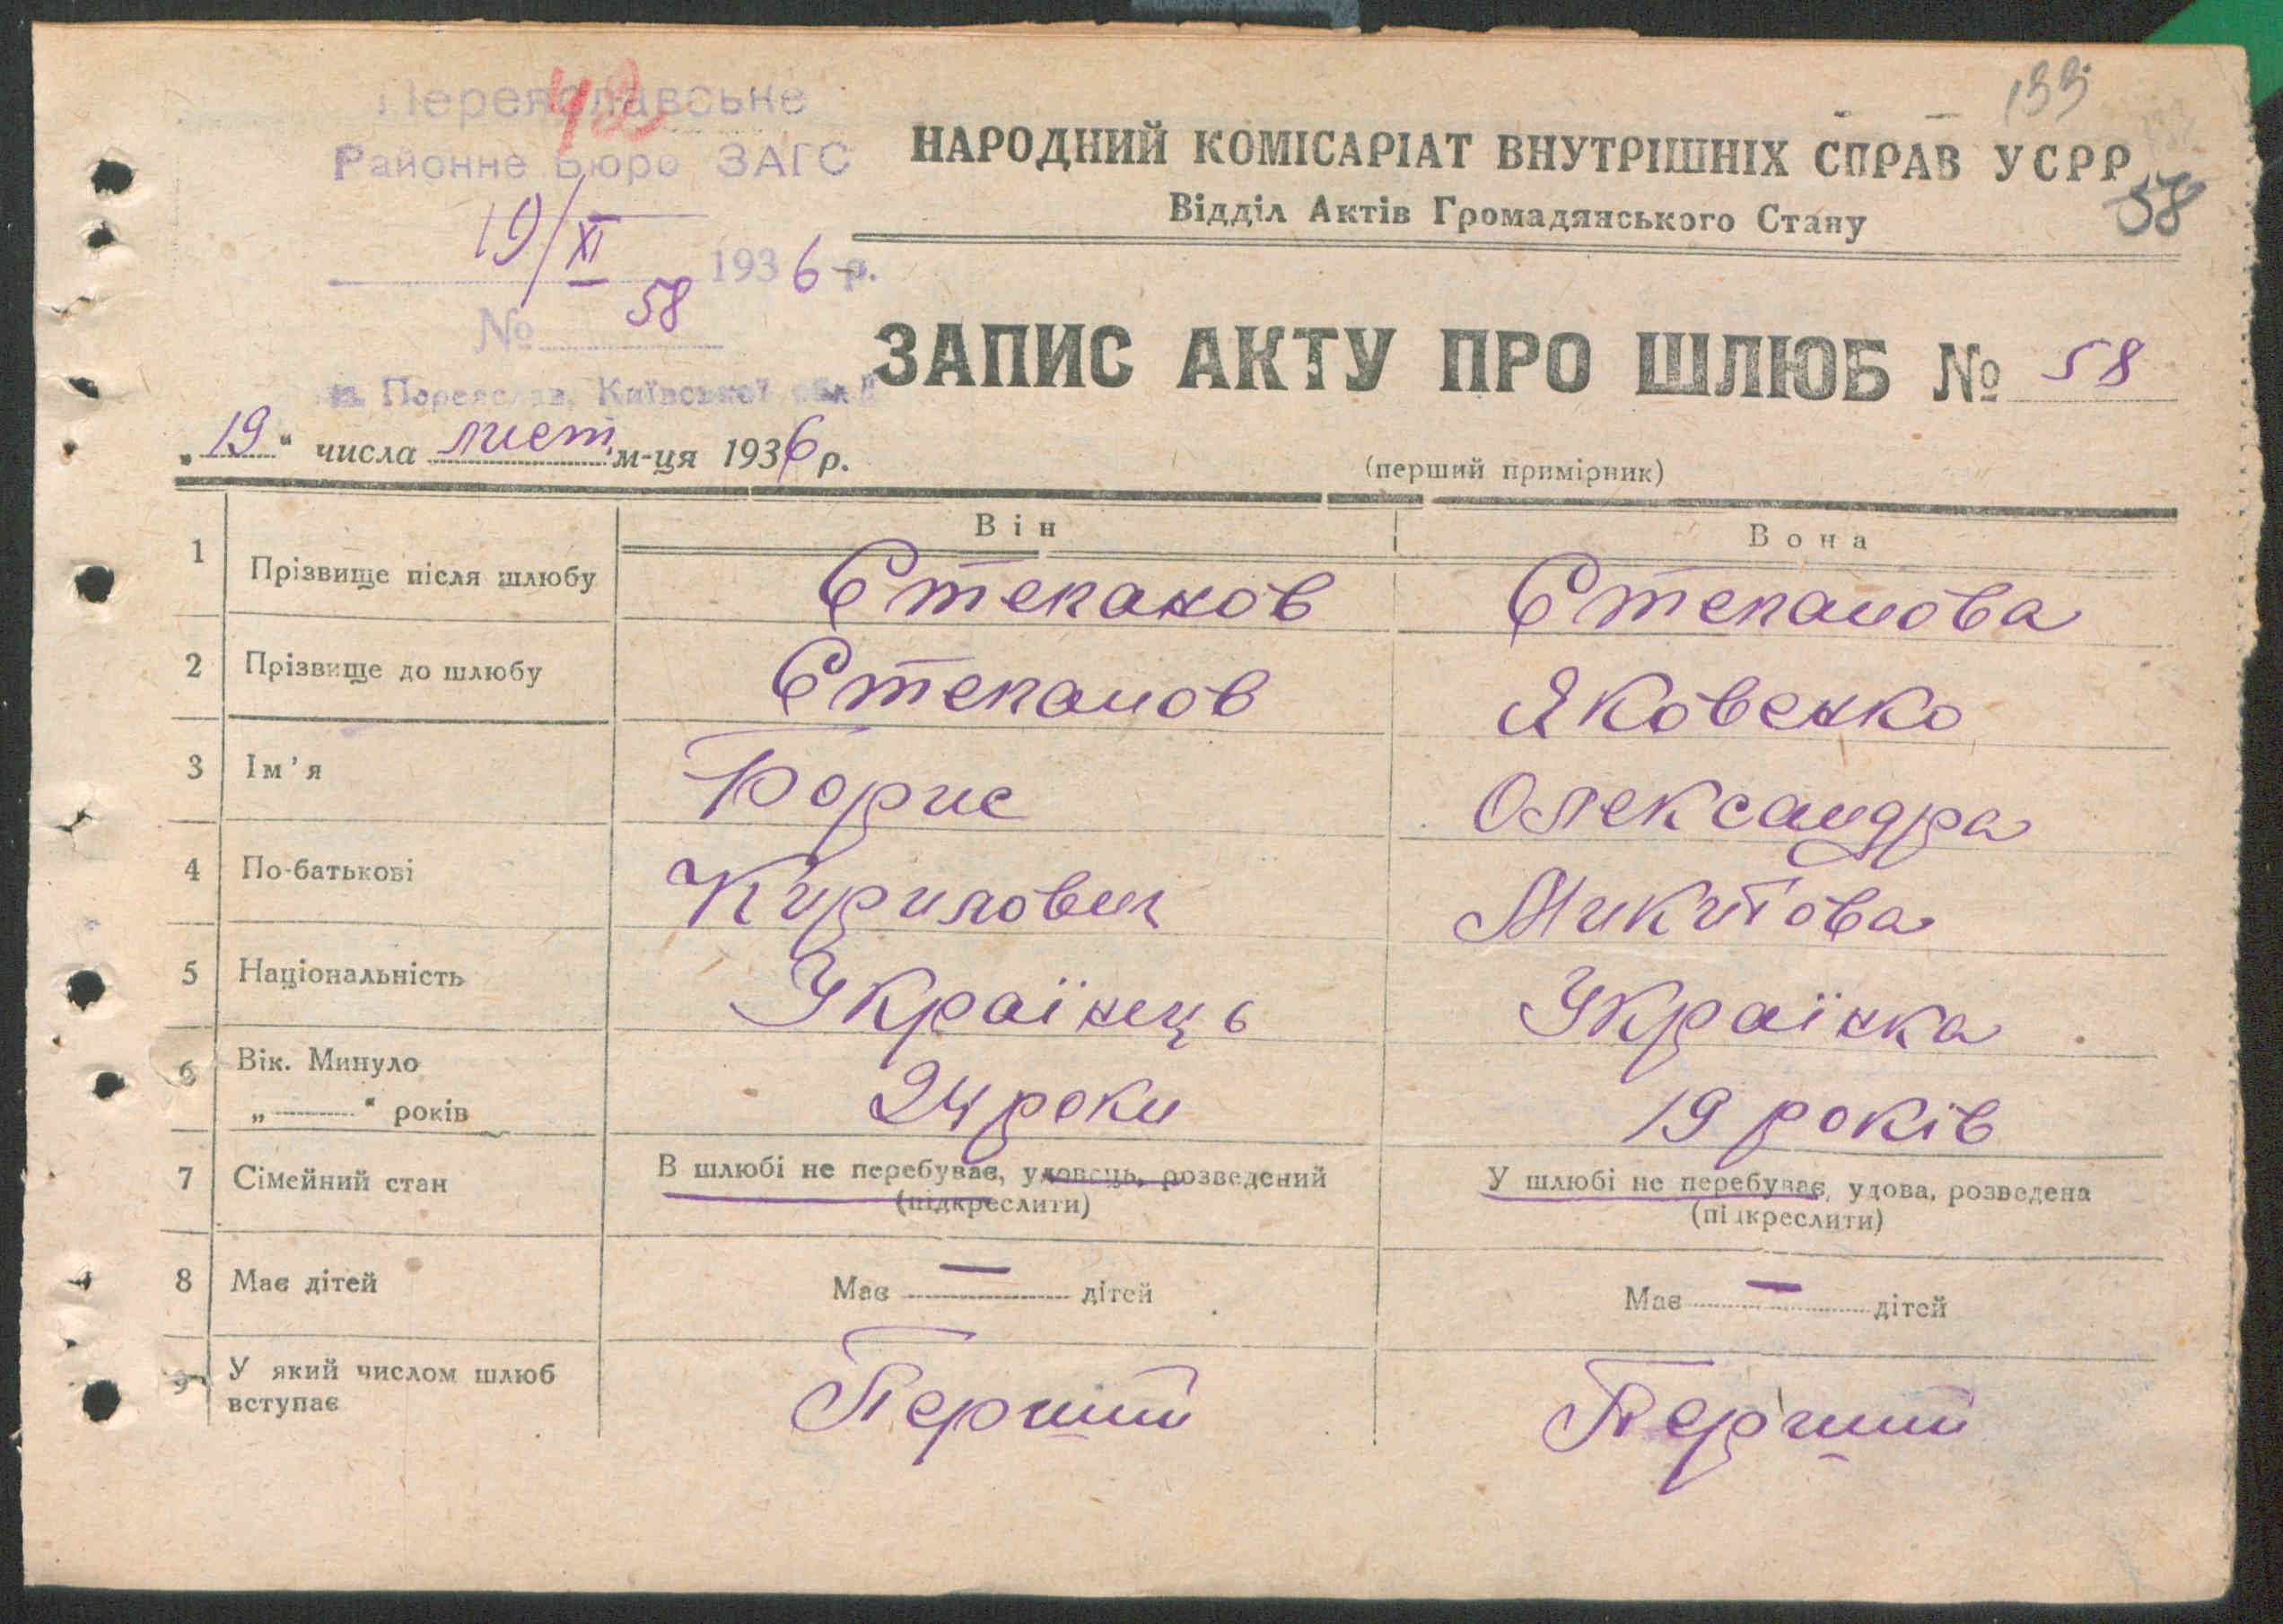 42
133
58
Переяславське
Районне Бюро ЗАГС
19/XI 1936 р.
№ 58
м. Переяслав, Київської обл.
НАРОДНИЙ КОМІСАРІАТ ВНУТРІШНІХ СПРАВ УСРР
Відділ Актів Громадянського Стану
ЗАПИС АКТУ ПРО ШЛЮБ № 58
„19“ числа лист. м-ця 1936 р.
(перший примірник)
Він Вона
1 Прізвище після шлюбу Степанов Степанова
2 Прізвище до шлюбу Степанов Яковенко
3 Ім’я Борис Олександра
4 По-батькові Кирилович Микитова
5 Національність Українець Українка
6 Вік. Минуло
„ “ років 24 роки 19 років
7 Сімейний стан В шлюбі не перебуває, удовець, розведений У шлюбі не перебуває, удова, розведена
(підкреслити) (підкреслити)
8 Має дітей Має — дітей Має — дітей
9 У який числом шлюб
вступає Перший Перший